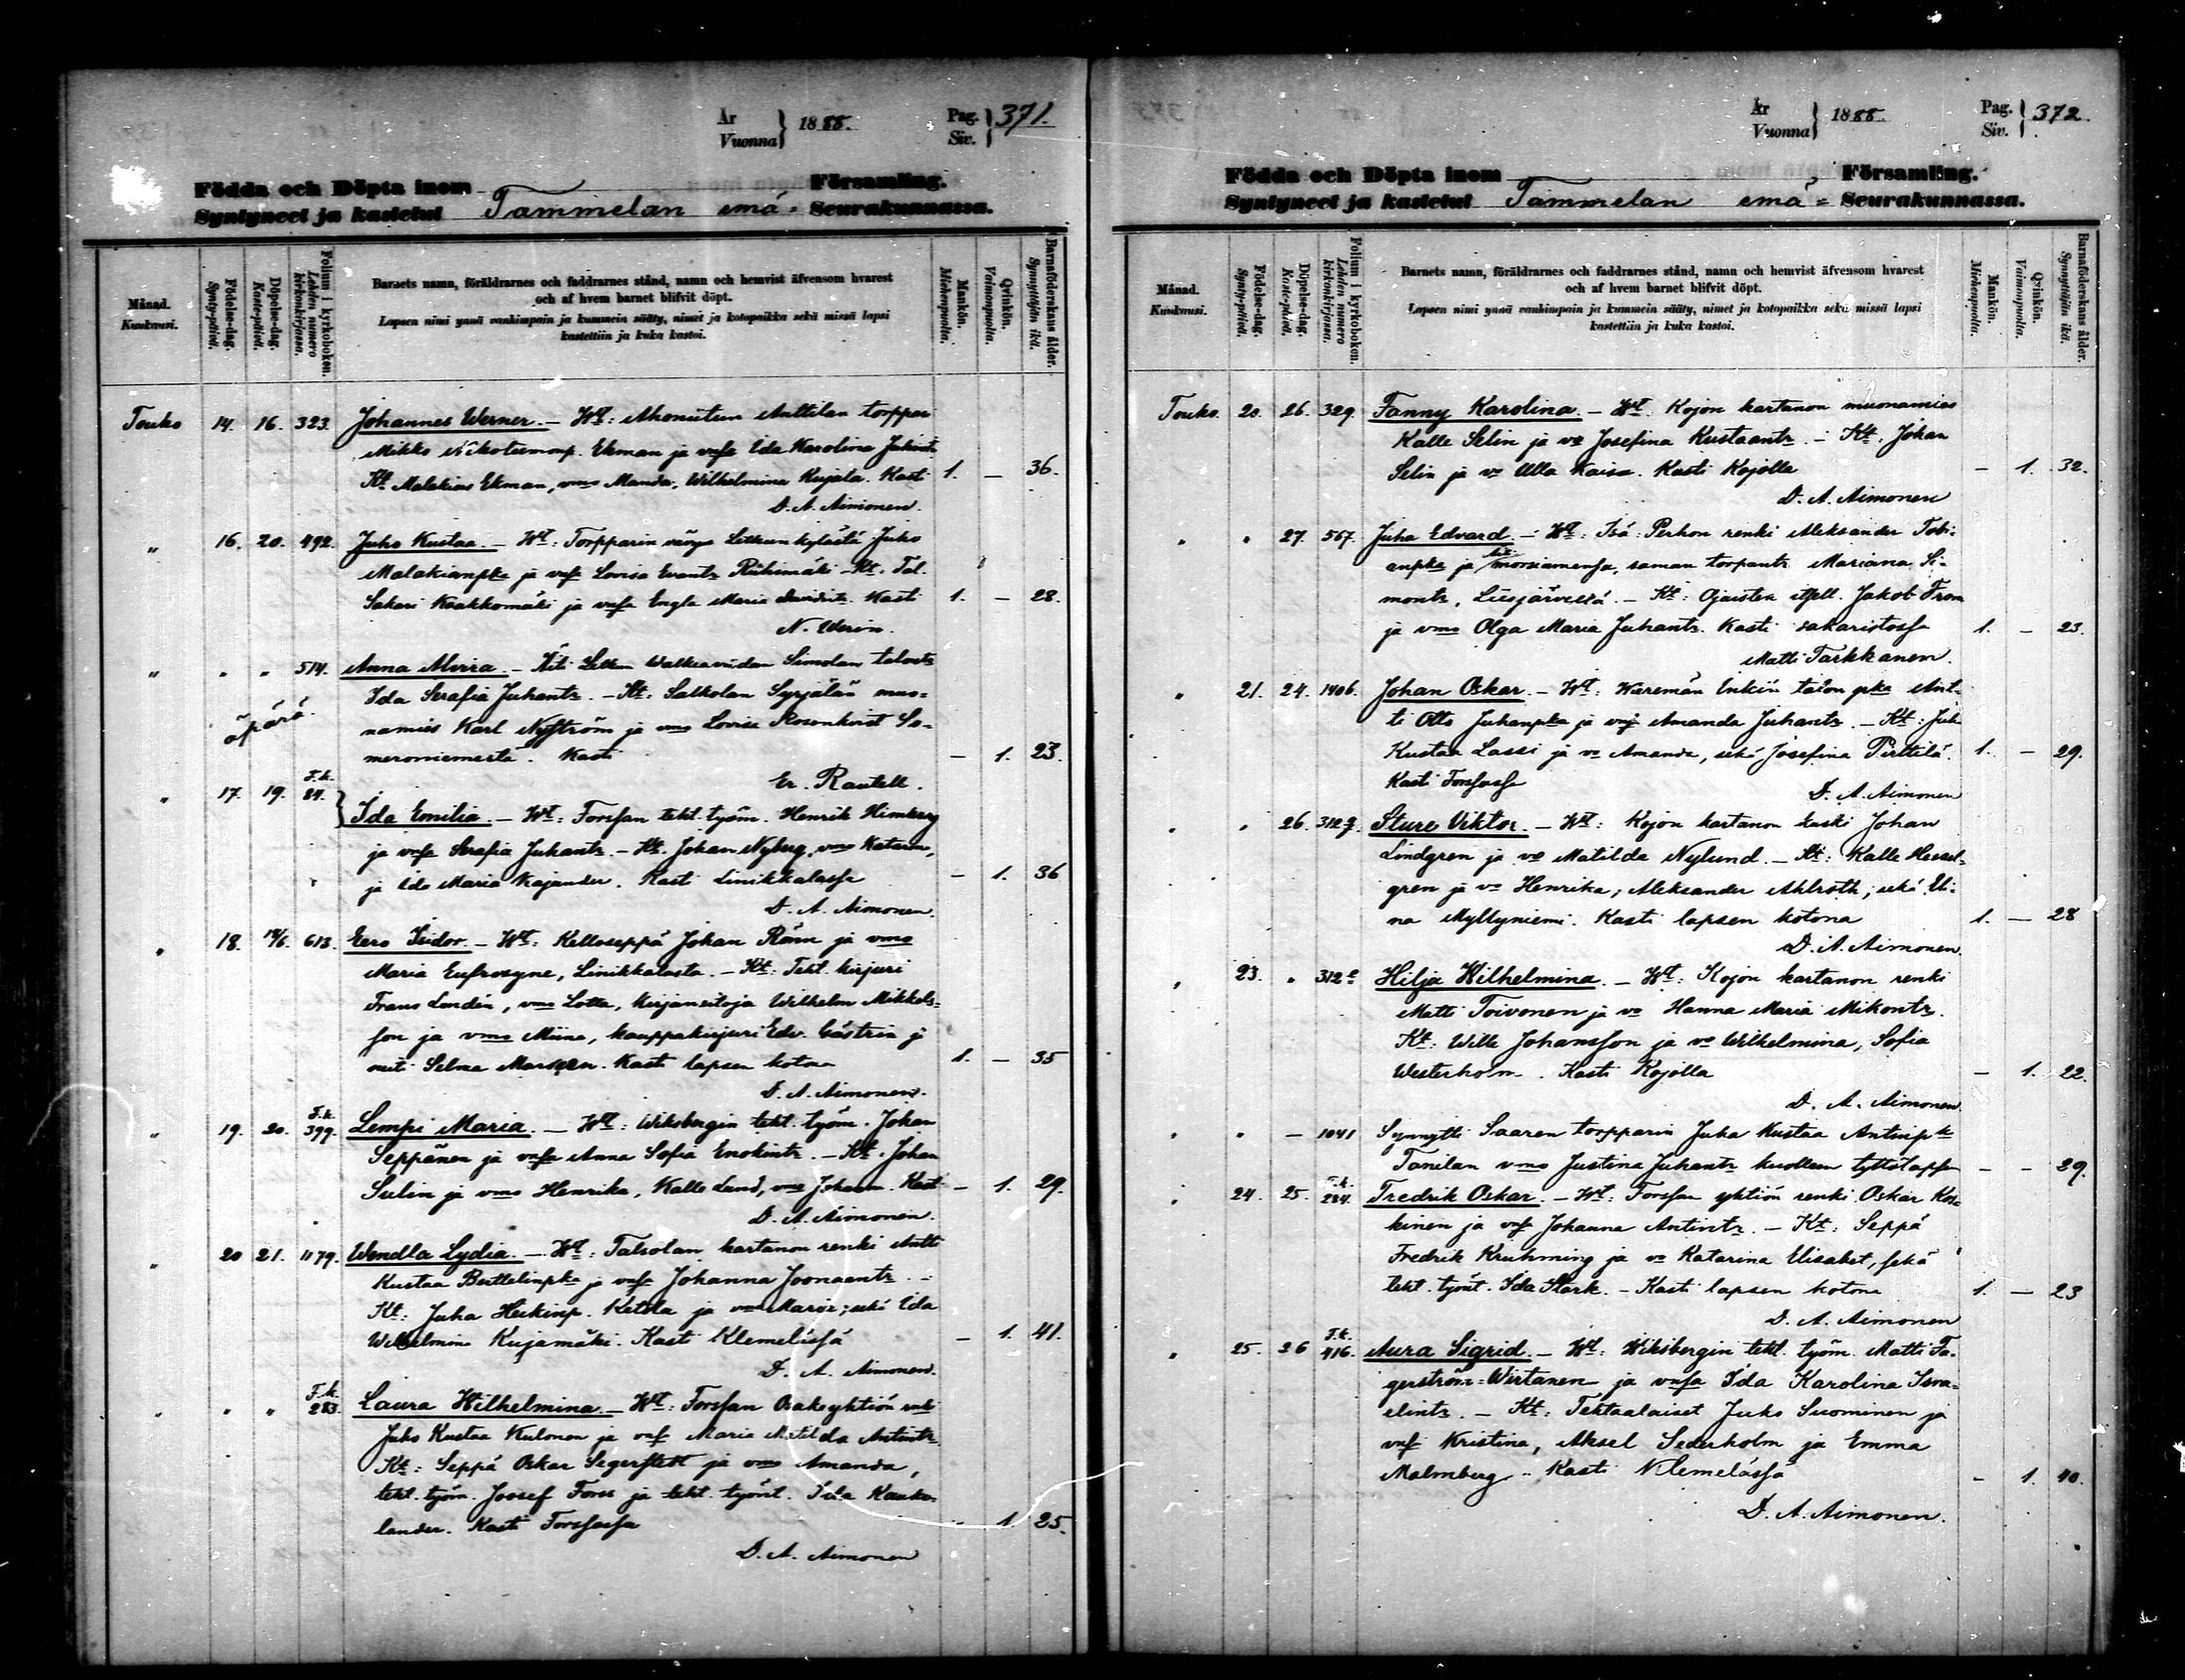 År
Vuonna } 1888. Pag. Siv. } 371.
Födda och Döpta inom Församling.
Syntyneet ja kastetut Tammelan emä- Seurakunnassa.
Månad. Kuukausi.
Födelse-dag. Synty-päivä.
Döpelse-dag. Kaste-päivä.
Folium i kyrkoboken. Lehden numero kirkonkirjassa.
Barnets namn, föräldrarnes och faddrarnes stånd, namn och hemvist äfvensom hvarest
och af hvem barnet blifvit döpt.
Lapsen nimi ynnä vanhimpain ja kummein sääty, nimet ja kotopaikka sekä missä lapsi
kastettiin ja kuka kastoi.
Mankön. Miehenpuolta.
Qvinkön. Vaimonpuolta.
Barnaföderskans ålder. Synnyttäjän ikä.
Touko 14. 16. 323. Johannes Werner. – Wt: Anttilan torppar
Mikko Ekman ja vaifa Ida Karolina
Kt Malakias Ekman, vmo Manda, Wilhelmina Kujala. Kasti 1. – 36.
D. A. Aimonen.
" 16. 20. 492. Juho Kustaa. – Wt: Torpparin Letkun kylästä Juho
Malakianpka ja vaifa Lovisa Evantr Riihimäki – Kt. Tal.
Sakari Kaakkomäki ja vaifa Engla Maria Kasti 1. – 28.
N. Werin.
" " " 514. Anna Alvira. – Äiti Letkun Simolan
äpärä Ida Serafia Juhantr. – Kt: Satkolan Syrjälän muo-
namies Karl Nyström ja vmo Lovisa Rosenkvist So-
merniemestä. Kasti – 1. 23.
Er. Rautell.
" 17. 19. F.k. 84. Ida Emilia. – Wt: Forssan teht. työm. Henrik Himberg
ja vaifa Serafia Juhantr. – Kt. Johan Nyberg, vmo Katarin,
ja Ida Maria Kajander. Kasti Linikkalassa – 1. 36
D. A. Aimonen.
" 18. 14/6. 613. Eero Isidor. – Wt: Kelloseppä Johan Rönn ja vmo
Maria Eufrosyne, Linikkalasta. – Kt: Teht. kirjuri
Frans Lundén, vmo Lotta, kirjansitoja Wilhelm Mikkels-
son ja vmo Miina, kauppakirjuri Edv. Gästrin j
neit Selma Kasti lapsen kotona 1. – 35
D. A. Aimonen.
" 19. 20. F.k. 399. Lempi Maria. – Wt: Wiksbergin teht. työm. Johan
Seppänen ja vaifa Anna Sofia Enokintr. – Kt. Johan
Sulin ja vmo Henrika, Kalle Lund, vmo Johann. Kast – 1. 29.
D. A. Aimonen.
" 20 21. 1179. Wendla Lydia. – Wt: Talsolan kartanon renki Antti
Kustaa Berttelinpka ja vaifa Johanna Joonaantr. –
Kt: Juha Heikinp. Ketola ja vmo Maria; sekä Ida
Wilhelmina Kujamäki. Kasti Klemelässä – 1. 41.
D. A. Aimonen.
" " " F.k. 283. Laura Wilhelmina. – Wt: Forssan Osakeyhtiön renki
Juho Kustaa Kulonen ja vaif Maria Matilda Antintr.
Kt: Seppä Oskar Segerstedt ja vmo Amanda,
teht. työm. Joosef Forss ja teht. työnt. Ida Kauko-
lander. Kasti Forssassa – 1. 25.
D. A. Aimonen
År
Vuonna } 1888. Pag. Siv. } 372.
Födda och Döpta inom Församling.
Syntyneet ja kastetut Tammelan emä- Seurakunnassa.
Månad. Kuukausi.
Födelse-dag. Synty-päivä.
Döpelse-dag. Kaste-päivä.
Folium i kyrkoboken. Lehden numero kirkonkirjassa.
Barnets namn, föräldrarnes och faddrarnes stånd, namn och hemvist äfvensom hvarest
och af hvem barnet blifvit döpt.
Lapsen nimi ynnä vanhimpain ja kummein sääty, nimet ja kotopaikka sekä missä lapsi
kastettiin ja kuka kastoi.
Mankön. Miehenpuolta.
Qvinkön. Vaimonpuolta.
Barnaföderskans ålder. Synnyttäjän ikä.
Touko. 20. 26. 329. Fanny Karolina. – Wt. Kojon kartanon muonamies
Kalle Selin ja vo Josefina Kustaantr. – Kt. Johan
Selin ja vo Ulla Kaisa. Kasti Kojolla – 1. 32.
D. A. Aimonen
" " 27. 567. Juha Edvard. – Wt: Isä: Perhon renki Aleksander Tobi-
anpka ja morsiamensa, saman torpantr Mariana Si-
montr, Liesjärveltä. – Kt: Ojaisten itsell. Jakob From
ja vmo Olga Maria Juhantr. Kasti sakaristossa 1. – 23.
Matti Tarkkanen.
" 21. 24. 1406. Johan Oskar. – Wt: talon pka Ant-
ti Otto Juhanpka ja vaif Amanda Juhantr. – Kt: Juh.
Kustaa Lassi ja vo Amanda, sekä Josefina Perttilä. 1. – 29.
Kasti Forssassa
D. A. Aimonen
" " 26. 312 Sture Viktor. – Wt: Kojon kartanon kuski Johan
Lindgren ja vo Matilda Nylund. – Kt: Kalle Hessel-
gren ja vo Henrika, Aleksander Ahlroth, sekä Eli-
na Myllyniemi. Kasti lapsen kotona 1. – 28
D. A. Aimonen.
" 23. " 312 e Hilja Wilhelmina. – Wt: Kojon kartanon renki
Matti Toivonen ja vo Hanna Maria Mikontr.
Kt: Wille Johansson ja vo Wilhelmina, Sofia
Westerholm. Kasti Kojolla – 1. 22.
D. A. Aimonen.
" " – 1041 Synnytti Saaren torpparin Juha Kustaa Antinpk
Tanilan vmo Justina Juhantr kuolleen tyttölapsen – – 29.
" 24. 25. F.k. 284. Fredrik Oskar. – Wt: Forssan yhtiön renki Oskar Kos-
kinen ja vaif Johanna Antintr. – Kt: Seppä
Fredrik Kruhming ja vo Katarina Elisabet, sekä
teht. työnt. Ida Stark. – Kasti lapsen kotona 1. – 23
D. A. Aimonen
" 25. 26 F.k. 416. Aura Sigrid. – Wt: Wiksbergin teht. työm. Matti Fa-
gerström-Wirtanen ja vaifa Ida Karolina Isra-
elintr. – Kt: Tehtaalaiset Juho Suominen ja
vaif Kristina, Aksel Sederholm ja Emma
Malmberg. Kasti Klemelässä – 1. 40.
D. A. Aimonen.